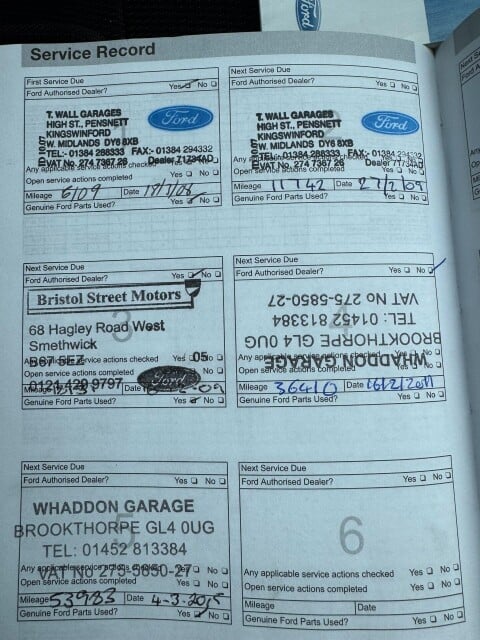 Ford
Service Record
First Service Due
Ford Authorised Dealer? Yes No
T. WALL GARAGES
HIGH ST., PENSNETT
KINGSWINFORD
W. MIDLANDS DY6 8XB
TEL:- 01384 288333 FAX:- 01384 294332
VAT No. 274 7367 26 Dealer 71734AD
Ford
Any applicable service actions checked Yes No
Open service actions completed Yes No
Mileage 6109 Date
Genuine Ford Parts Used? Yes No
Next Service Due
Ford Authorised Dealer? Yes No
T. WALL GARAGES
HIGH ST., PENSNETT
KINGSWINFORD
W. MIDLANDS DY6 8XB
TEL:- 01384 288333 FAX:- 01384 294332
VAT No. 274 7367 26 Dealer 71734AD
Ford
Any applicable service actions checked Yes No
Open service actions completed Yes No
Mileage 11742 Date 27/2/09
Genuine Ford Parts Used? Yes No
Next Service Due
Ford Authorised Dealer? Yes No
3
Bristol Street Motors
68 Hagley Road West
Smethwick
B67 5EZ
0121 420 9797
05
Ford
Any applicable service actions checked Yes No
Open service actions completed Yes No
Mileage Date
Genuine Ford Parts Used? Yes No
Next Service Due
Ford Authorised Dealer? Yes No
4
WHADDON GARAGE
BROOKTHORPE GL4 0UG
TEL: 01452 813384
VAT No 275-5850-27
Any applicable service actions checked Yes No
Open service actions completed Yes No
Mileage 36410 Date 16/2/2011
Genuine Ford Parts Used? Yes No
Next Service Due
Ford Authorised Dealer? Yes No
5
WHADDON GARAGE
BROOKTHORPE GL4 0UG
TEL: 01452 813384
VAT No 275-5850-27
Any applicable service actions checked Yes No
Open service actions completed Yes No
Mileage 53983 Date 4-3-2015
Genuine Ford Parts Used? Yes No
Next Service Due
Ford Authorised Dealer? Yes No
6
Any applicable service actions checked Yes No
Open service actions completed Yes No
Mileage Date
Genuine Ford Parts Used? Yes No